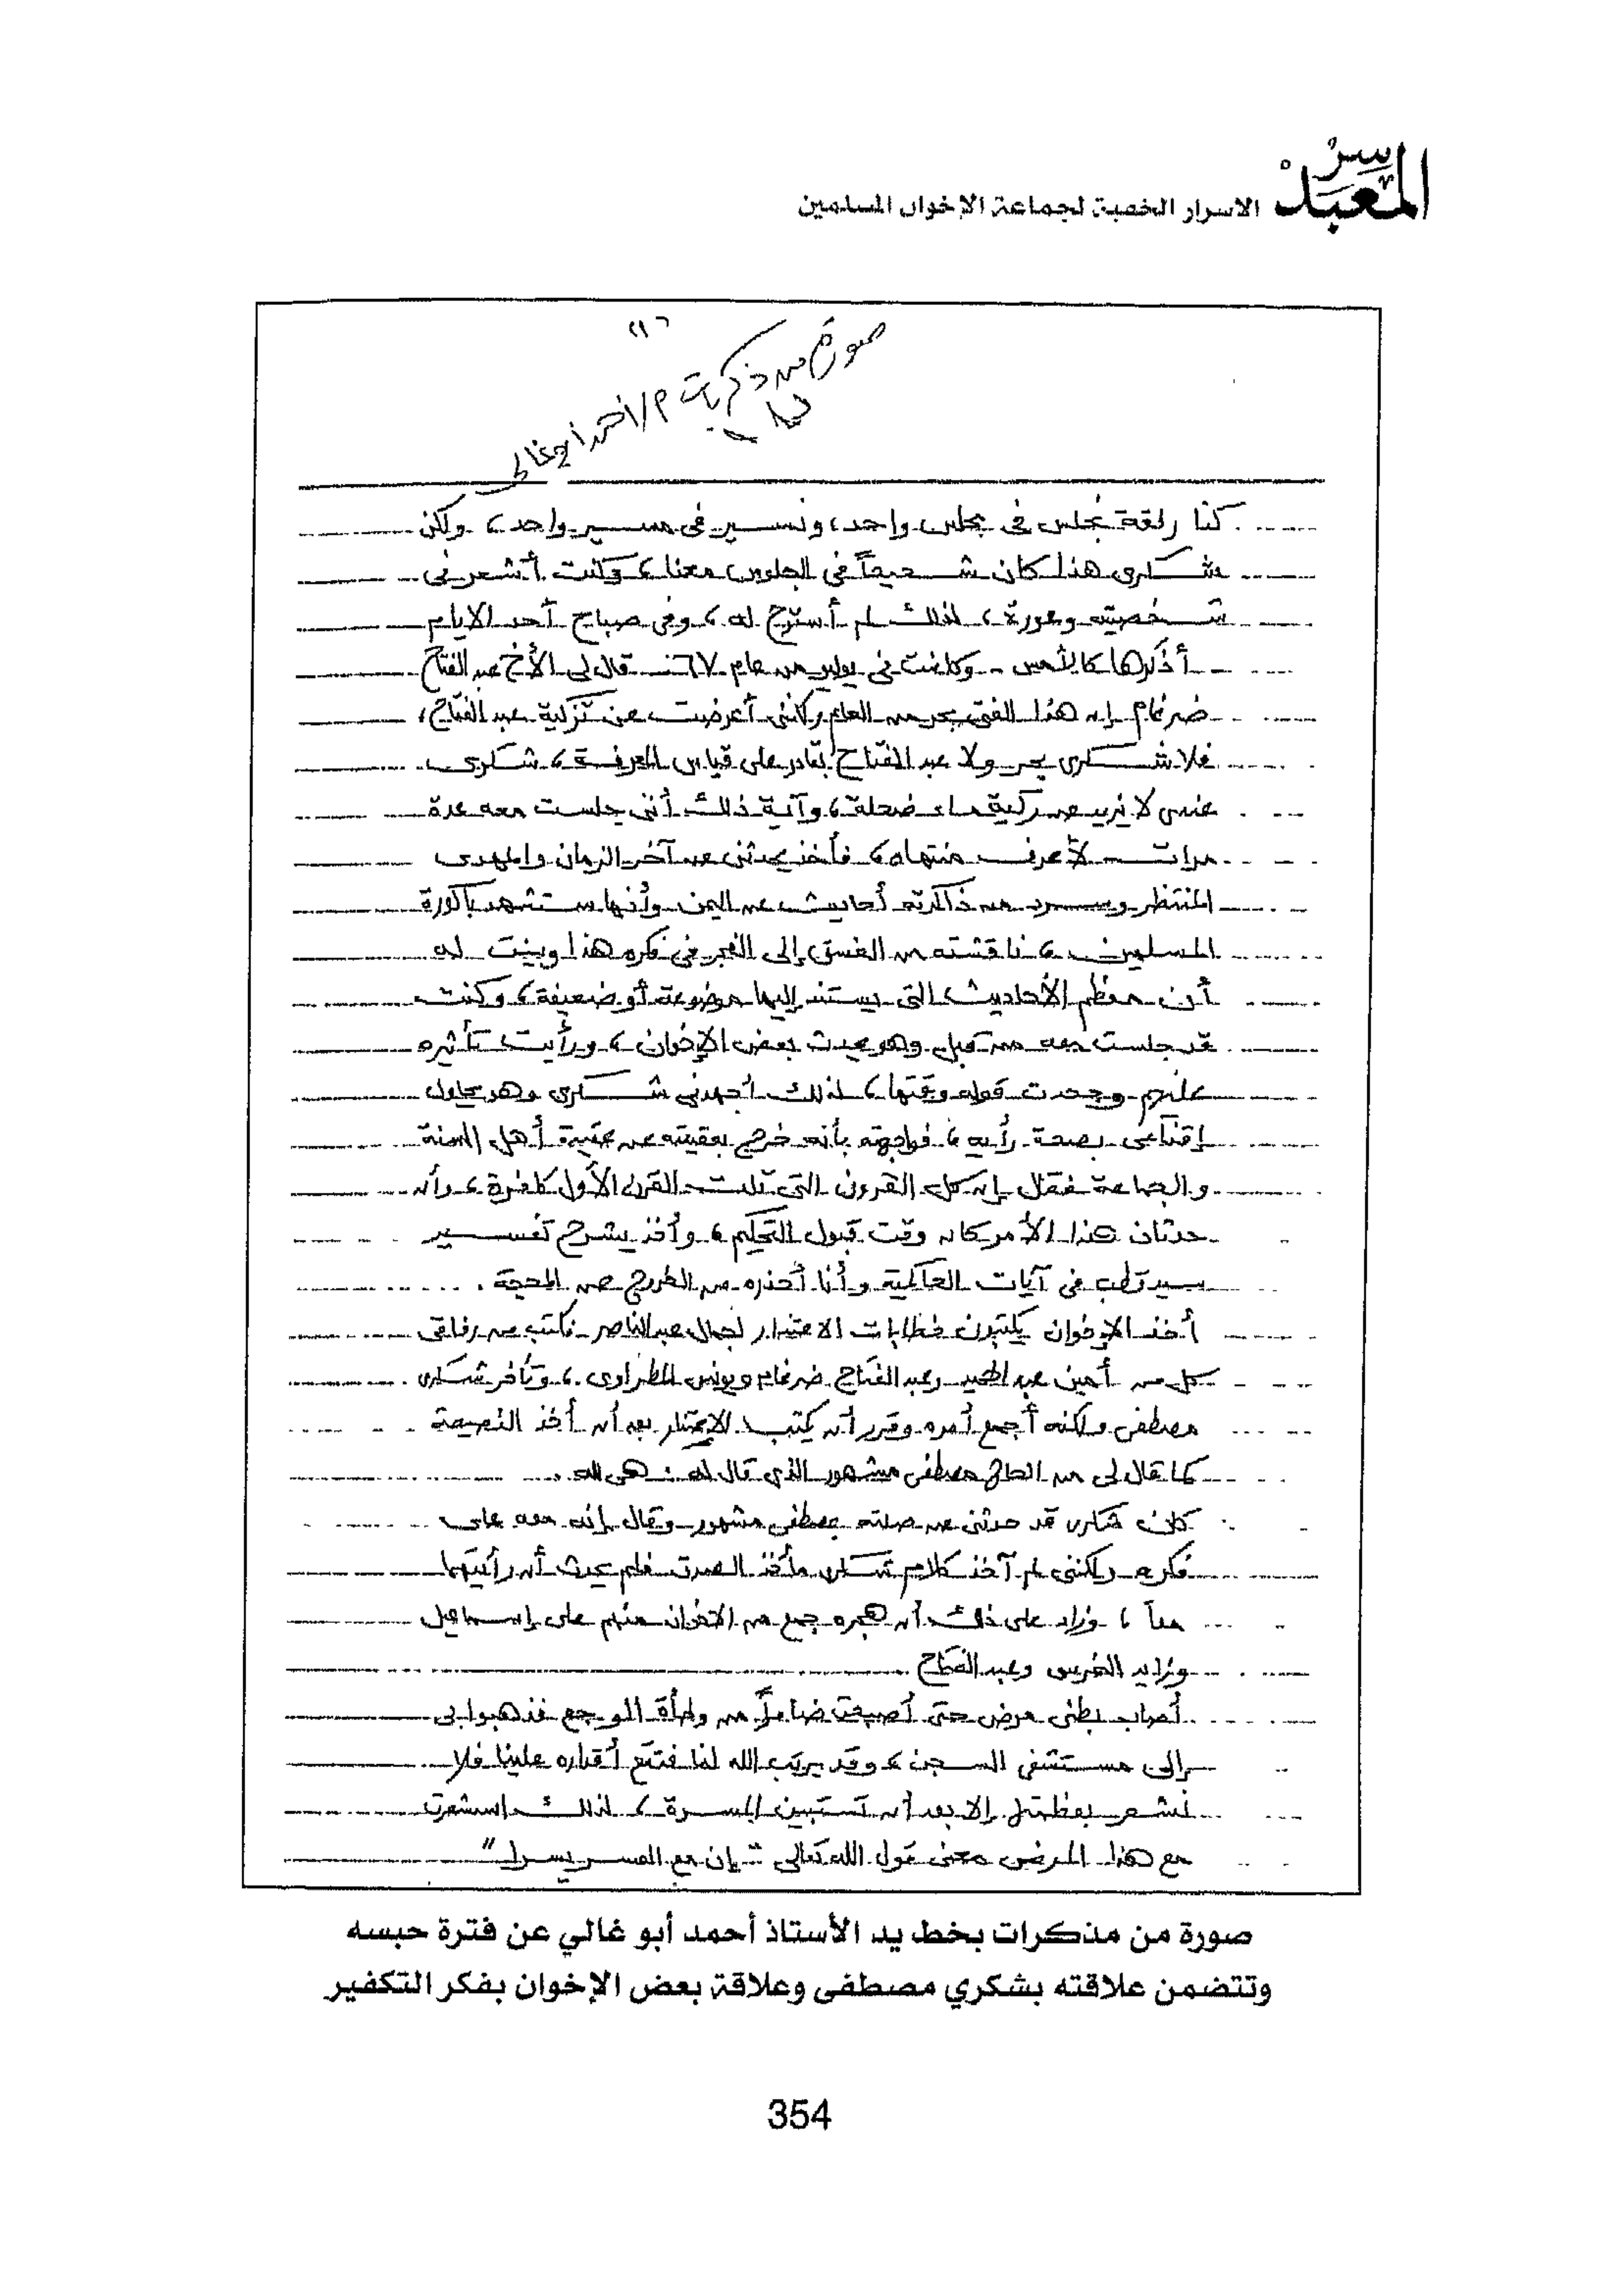 سر المعبد
الاسرار الخفية لجماعة الإخوان المسلمين
"١"
صورة من ذكريات م/ أحمد أبو غالى
كنا رفقة نجلس فى مجلس واحد، ونسير فى مسير واحد، ولكن
شكرى هذا كان شحيحاً فى الجلوس معنا، وكنت أشعر فى
شخصيته وعورة، لذلك لم أسترح له، وفى صباح أحد الايام
أذكرها كالأمس - وكانت فى يوليو من عام ٦٧ - قال لى الأخ عبد الفتاح
ضرغام إن هذا الفتى بحر من العلم ولكننى أعرضت عن تزكية عبد الفتاح،
فلا شكرى بحر ولا عبد الفتاح بقادر على قياس المعرفة، شكرى
عندى لا يزيد عن ركية ماء ضحلة، وآية ذلك أننى جلست معه عدة
مرات لأعرف منتهاه، فأخذ يحدثنى عن آخر الزمان والمهدى
المنتظر ويسرد من ذاكرته أحاديث عن اليمن وأنها ستشهد باكورة
المسلمين، ناقشته من الغسق إلى الفجر فى فكره هذا وبينت له
أن معظم الأحاديث التى يستند إليها موضوعة أو ضعيفة، وكنت
قد جلست معه من قبل وهو يحدث بعض الإخوان، ورأيت تأثيره
عليهم وجحدت قوله وقتها، لذلك أجهدنى شكرى وهو يحاول
إقناعى بصحة رأيه، فواجهته بأنه خرج بعقيدته عن عقيدة أهل السنة
والجماعة فقال إن كل القرون التى تلت القرن الأول كافرة، وأن
حدثان هذا الأمر كان وقت قبول التحكيم، وأخذ يشرح تفسير
سيد قطب فى آيات الحاكمية وأنا أحذره من الخروج عن المحجة.
أخذ الإخوان يكتبون خطابات الاعتذار لجمال عبد الناصر فكتب من رفاقى
كل من أمين عبد الحميد وعبد الفتاح ضرغام ويونس الطراوى، وتأخر شكرى
مصطفى ولكنه أجمع أمره وقرر أن يكتب الإعتذار بعد أن أخذ النصيحة
كما قال لى من الحاج مصطفى مشهور الذى قال له: هى لله.
كان شكرى قد حدثنى عن صلته بمصطفى مشهور وقال إنه معه على
فكره ولكننى لم آخذ كلام شكرى مأخذ الصدق فلم يحدث أن رأيتهما
معاً، وزاد على ذلك أن هجره جمع من الاخوان منهم على إسماعيل
وزايد الخرس وعبد الفتاح
أصاب بطنى مرض حتى أصبحت ضامراً من وطأة الوجع فذهبوا بى
إلى مستشفى السجن، وقد يرتب الله لنا فتقع أقداره علينا فلا
نشعر بعظمتها إلا بعد أن تستبين المسرة، لذلك استشعرت
مع هذا المرض معنى قول الله تعالى "إن مع العسر يسرا"
صورة من مذكرات بخط يد الأستاذ أحمد أبو غالي عن فترة حبسه
وتتضمن علاقته بشكري مصطفى وعلاقة بعض الإخوان بفكر التكفير
354